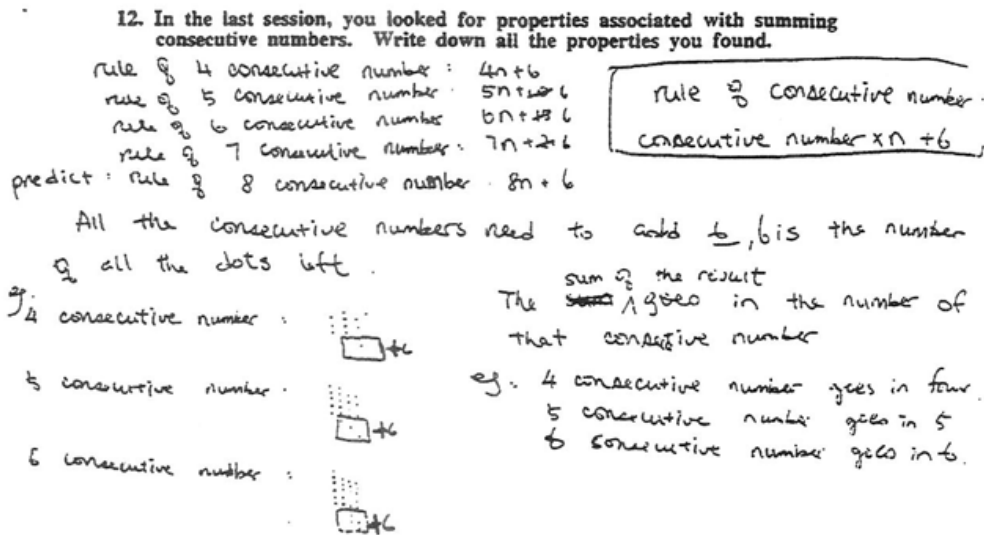 12. In the last session, you looked for properties associated with summing
consecutive numbers. Write down all the properties you found.
rule of 4 consecutive number : 4n+6
rule of 5 consecutive number . 5n+6
rule of 6 consecutive number 6n+6
rule of 7 consecutive number : 7n+6
predict : rule of 8 consecutive number . 8n + 6
rule of consecutive number .
consecutive number x n + 6
All the consecutive numbers need to add 6, 6 is the number
of all the dots left .
eg. 4 consecutive number : +6
5 consecutive number . +6
6 consecutive number : +6
sum of the result
The goes in the number of
that consective number
eg. 4 consecutive number goes in four.
5 consecutive number goes in 5
6 consecutive number goes in 6.